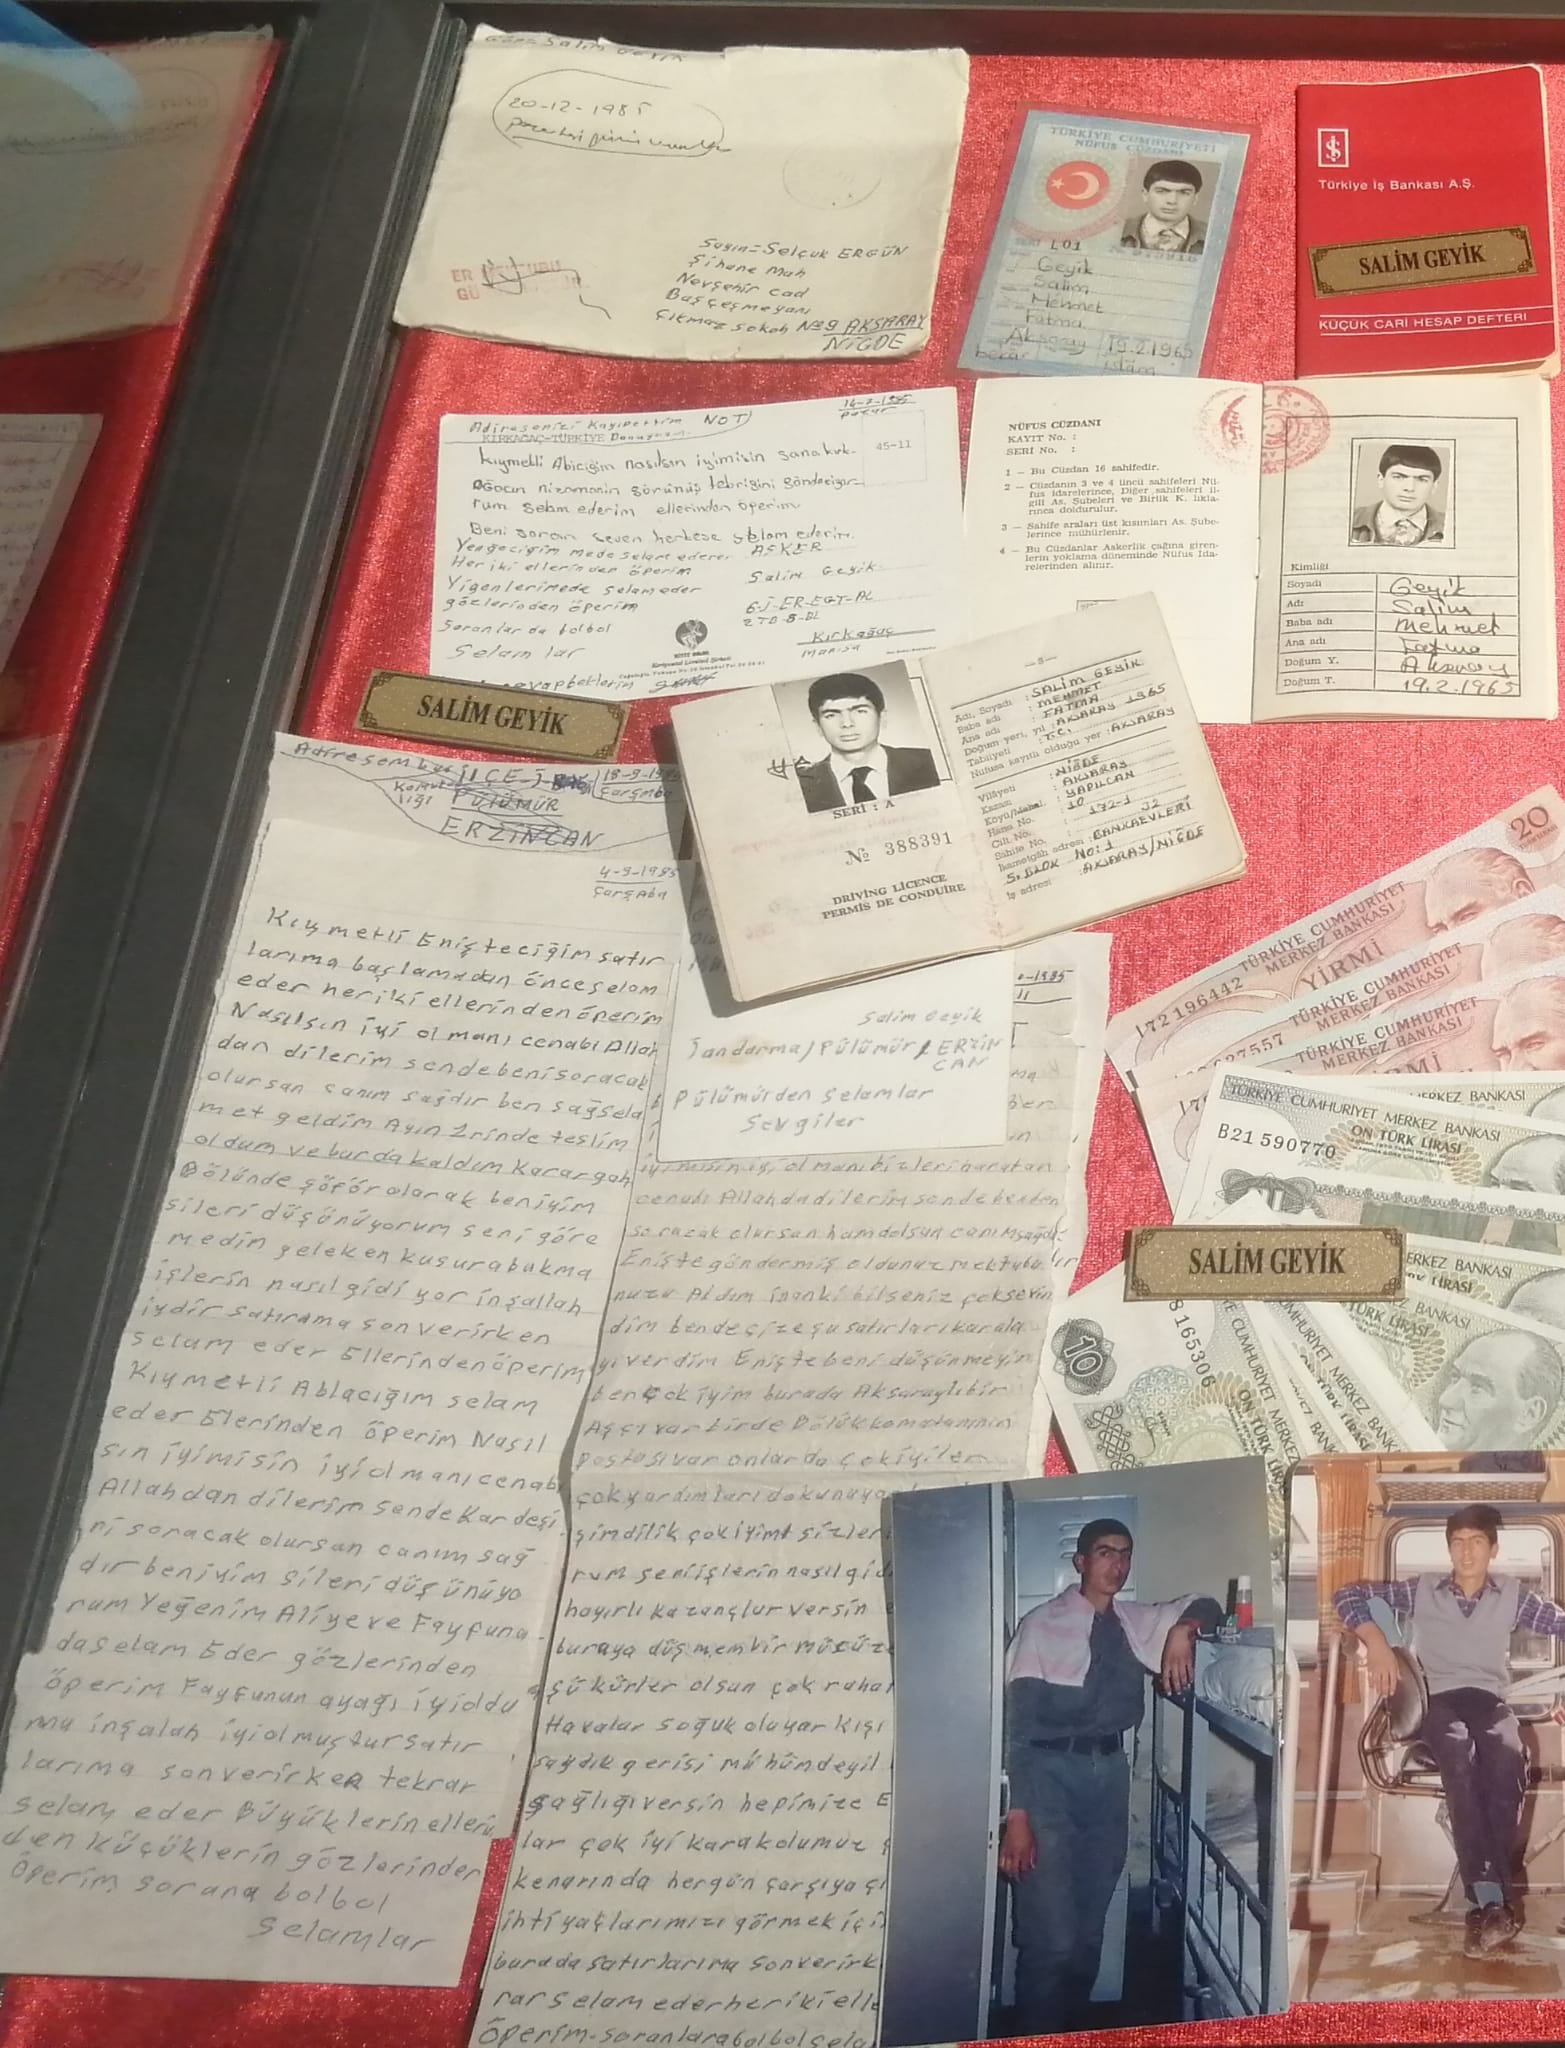 Gön=Salim GEYİK
20-12-1985
ER MEKTUBU
Sayın=Selçuk ERGÜN
Şihene Mah
Nevşehir Cad
Başçeşmeyanı
Çıkmaz sokoh No9 AKSARAY
NİĞDE
TÜRKİYE CUMHURİYETİ
NÜFUS CÜZDANI
SERİ L01
Geyik
Salim
Mehmet
Fatma
Aksaray 19.2.1965
bekar islâm
Türkiye İş Bankası A.Ş.
SALİM GEYİK
KÜÇÜK CARİ HESAP DEFTERİ
Adiresenizi Kayıpettim NOT
KIRKAĞAÇ-TÜRKİYE
Pazar
45-11
Kıymetli Abiciğim nasılsın iyimisin sana kırk-
ağacın nizamanin görünüş tebriğini gönderiyo-
rum selam ederim ellerinden öperim
Beni soran seven herkese selam ederim
Yengeciğim mede selam ederer
Her iki ellerinden öperim
Yigenlerimede selam eder
gözlerinden öperim
Soranlar da bolbol
Selam lar
ASKER
Salim Geyik
6-J-ER-EGT-AL
Kırkağaç
Manisa
NÜFUS CÜZDANI
KAYIT No. :
SERİ No. :
1 — Bu Cüzdan 16 sahifedir.
2 — Cüzdanın 3 ve 4 üncü sahifeleri Nü-
fus idarelerince, Diğer sahifeleri il-
gili As. Şubeleri ve Birlik K. lıkla-
rınca doldurulur.
3 — Sahife araları üst kısımları As. Şube-
lerince mühürlenir.
4 — Bu Cüzdanlar Askerlik çağına giren-
lerin yoklama döneminde Nüfus İda-
relerinden alınır.
Kimliği
Soyadı Geyik
Adı Salim
Baba adı Mehmet
Ana adı Fatma
Doğum Y. Aksaray
Doğum T. 19.2.1965
SALİM GEYİK
SERİ : A
№ 388391
DRIVING LICENCE
PERMIS DE CONDUIRE
Adı, Soyadı : SALİM GEYİK
Baba adı : MEHMET
Ana adı : FATMA
Doğum yeri, yıl : AKSARAY 1965
Tabiiyeti : T.C.
Nüfusa kayıtlı olduğu yer : AKSARAY
Vilâyeti : NİĞDE
Kazası : AKSARAY
Köyü/Mahal. : YAPILCAN
Hane No. : 10
Cilt No. : 172-1
Sahife No. : 32
İkametgâh adresi : BAHÇAEVLERİ
S. BLOK NO:1
AKSARAY/NİĞDE
İş adresi :
PÜLÜMÜR
ERZİNCAN
Çarşmba
4-9-1985
Çarşaba
Kıymetli Enişteciğim satır
larıma başlamadan önceselam
eder heriki ellerinden öperim
Nasılsın iyi olmanı cenabı Allah
dan dilerim sendebenisoracak
olursan canım sağdır ben sağsela
met geldim Ayın 2rinde teslim
oldum ve burda kaldım Karargah
Bölünde şöför olarak beniyim
sileri düşünüyorum seni göre
medim geleken kusurabakma
işlerin nasıl gidi yor inşallah
iydir satırama sonverirken
selam eder Ellerindenöperim
Kıymetli Ablacığım selam
eder Elerinden öperim Nasıl
sın iyimisin iyiolmanıcenab
Allahdan dilerim sendeKardeşi
ni soracak olursan canım sağ
dır beniyim Sileri düşünüyo
rum Yeğenim Aliyeve Fayfuna
daselam Eder gözlerinden
öperim Fayfunun ayağı iyioldu
mu inşalah iyiolmuştursatır
larıma sonverirken tekrar
selam eder Büyüklerinellerin
den küçüklerin gözlerinden
öperim sorana bolbol
Selamlar
Salim Geyik
Jandarma/Pülümür/ERZİN
CAN
Pülümürden Selamlar
Sevgiler
0-1985
iyimisin iyi olmanı bizleri haratan
cenabı Allahdadilerim sendebenden
soracak olursan hamdolsun canımsağdır
Enişte göndermiş oldunuz mektubu
nuzu Aldım inanki bilseniz çoksevin
dim bende sizeşu satırları karala
yıverdim Eniştebeni düşünmeyin
bençok iyim burada Aksaraylıbir
Aşçı varbirde Bölük komatanının
postası var onlarda çokiyiler
çokyardımları dokunuyo
şimdilik çokiyimt sizler
rum seniişlerin nasılgid
hayırlı kazançlur versin
buraya düşmembir mucuze
şükürler olsun çok rahat
Havalar soğuk oluyar kışı
saydık gerisi mühümdeyil
sağlığıversin hepimize E
lar çok iyi karakolumuz ç
kenarında hergün çarşıya çı
ihtiyaçlarımızı görmek içi
burada satırlarıma sonverirk
rar selamederherikielle
öperim-soranlarabolbolsela
20
TÜRKİYE CUMHURİYET
MERKEZ BANKASI
YİRMİ
I72 196442
TÜRKİYE CUMHURİYET
MERKEZ BANKASI
27557
TÜRKİYE CUMHURİYET
MERKEZ BANKASI
TÜRKİYE CUMHURİYET MERKEZ BANKASI
ON TÜRK LİRASI
B21 590770
MERKEZ BANKASI
SALİM GEYİK
MERKEZ BANKASI
TÜRK LİRASI
10
165306
ON TÜRK